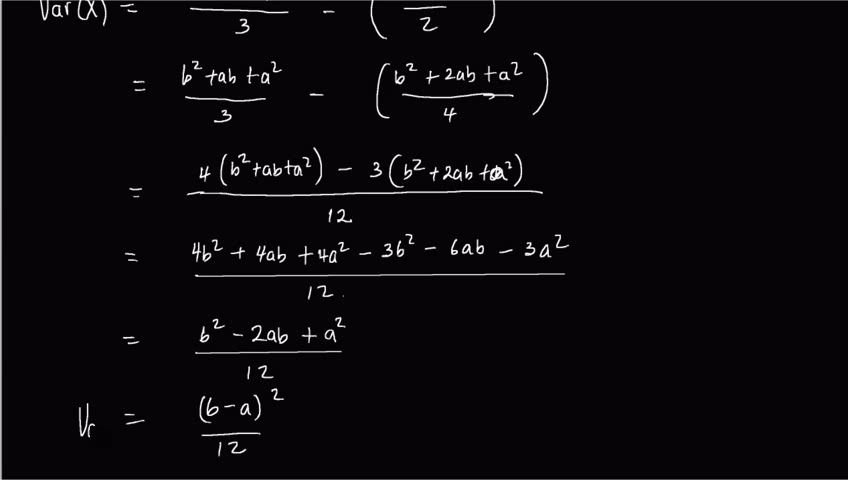 Var(X) = /3 - ( /2 )
= (b² + ab + a²)/3 - ((b² + 2ab + a²)/4)
= (4(b² + ab + a²) - 3(b² + 2ab + a²))/12
= (4b² + 4ab + 4a² - 3b² - 6ab - 3a²)/12
= (b² - 2ab + a²)/12
Vr = (b - a)²/12